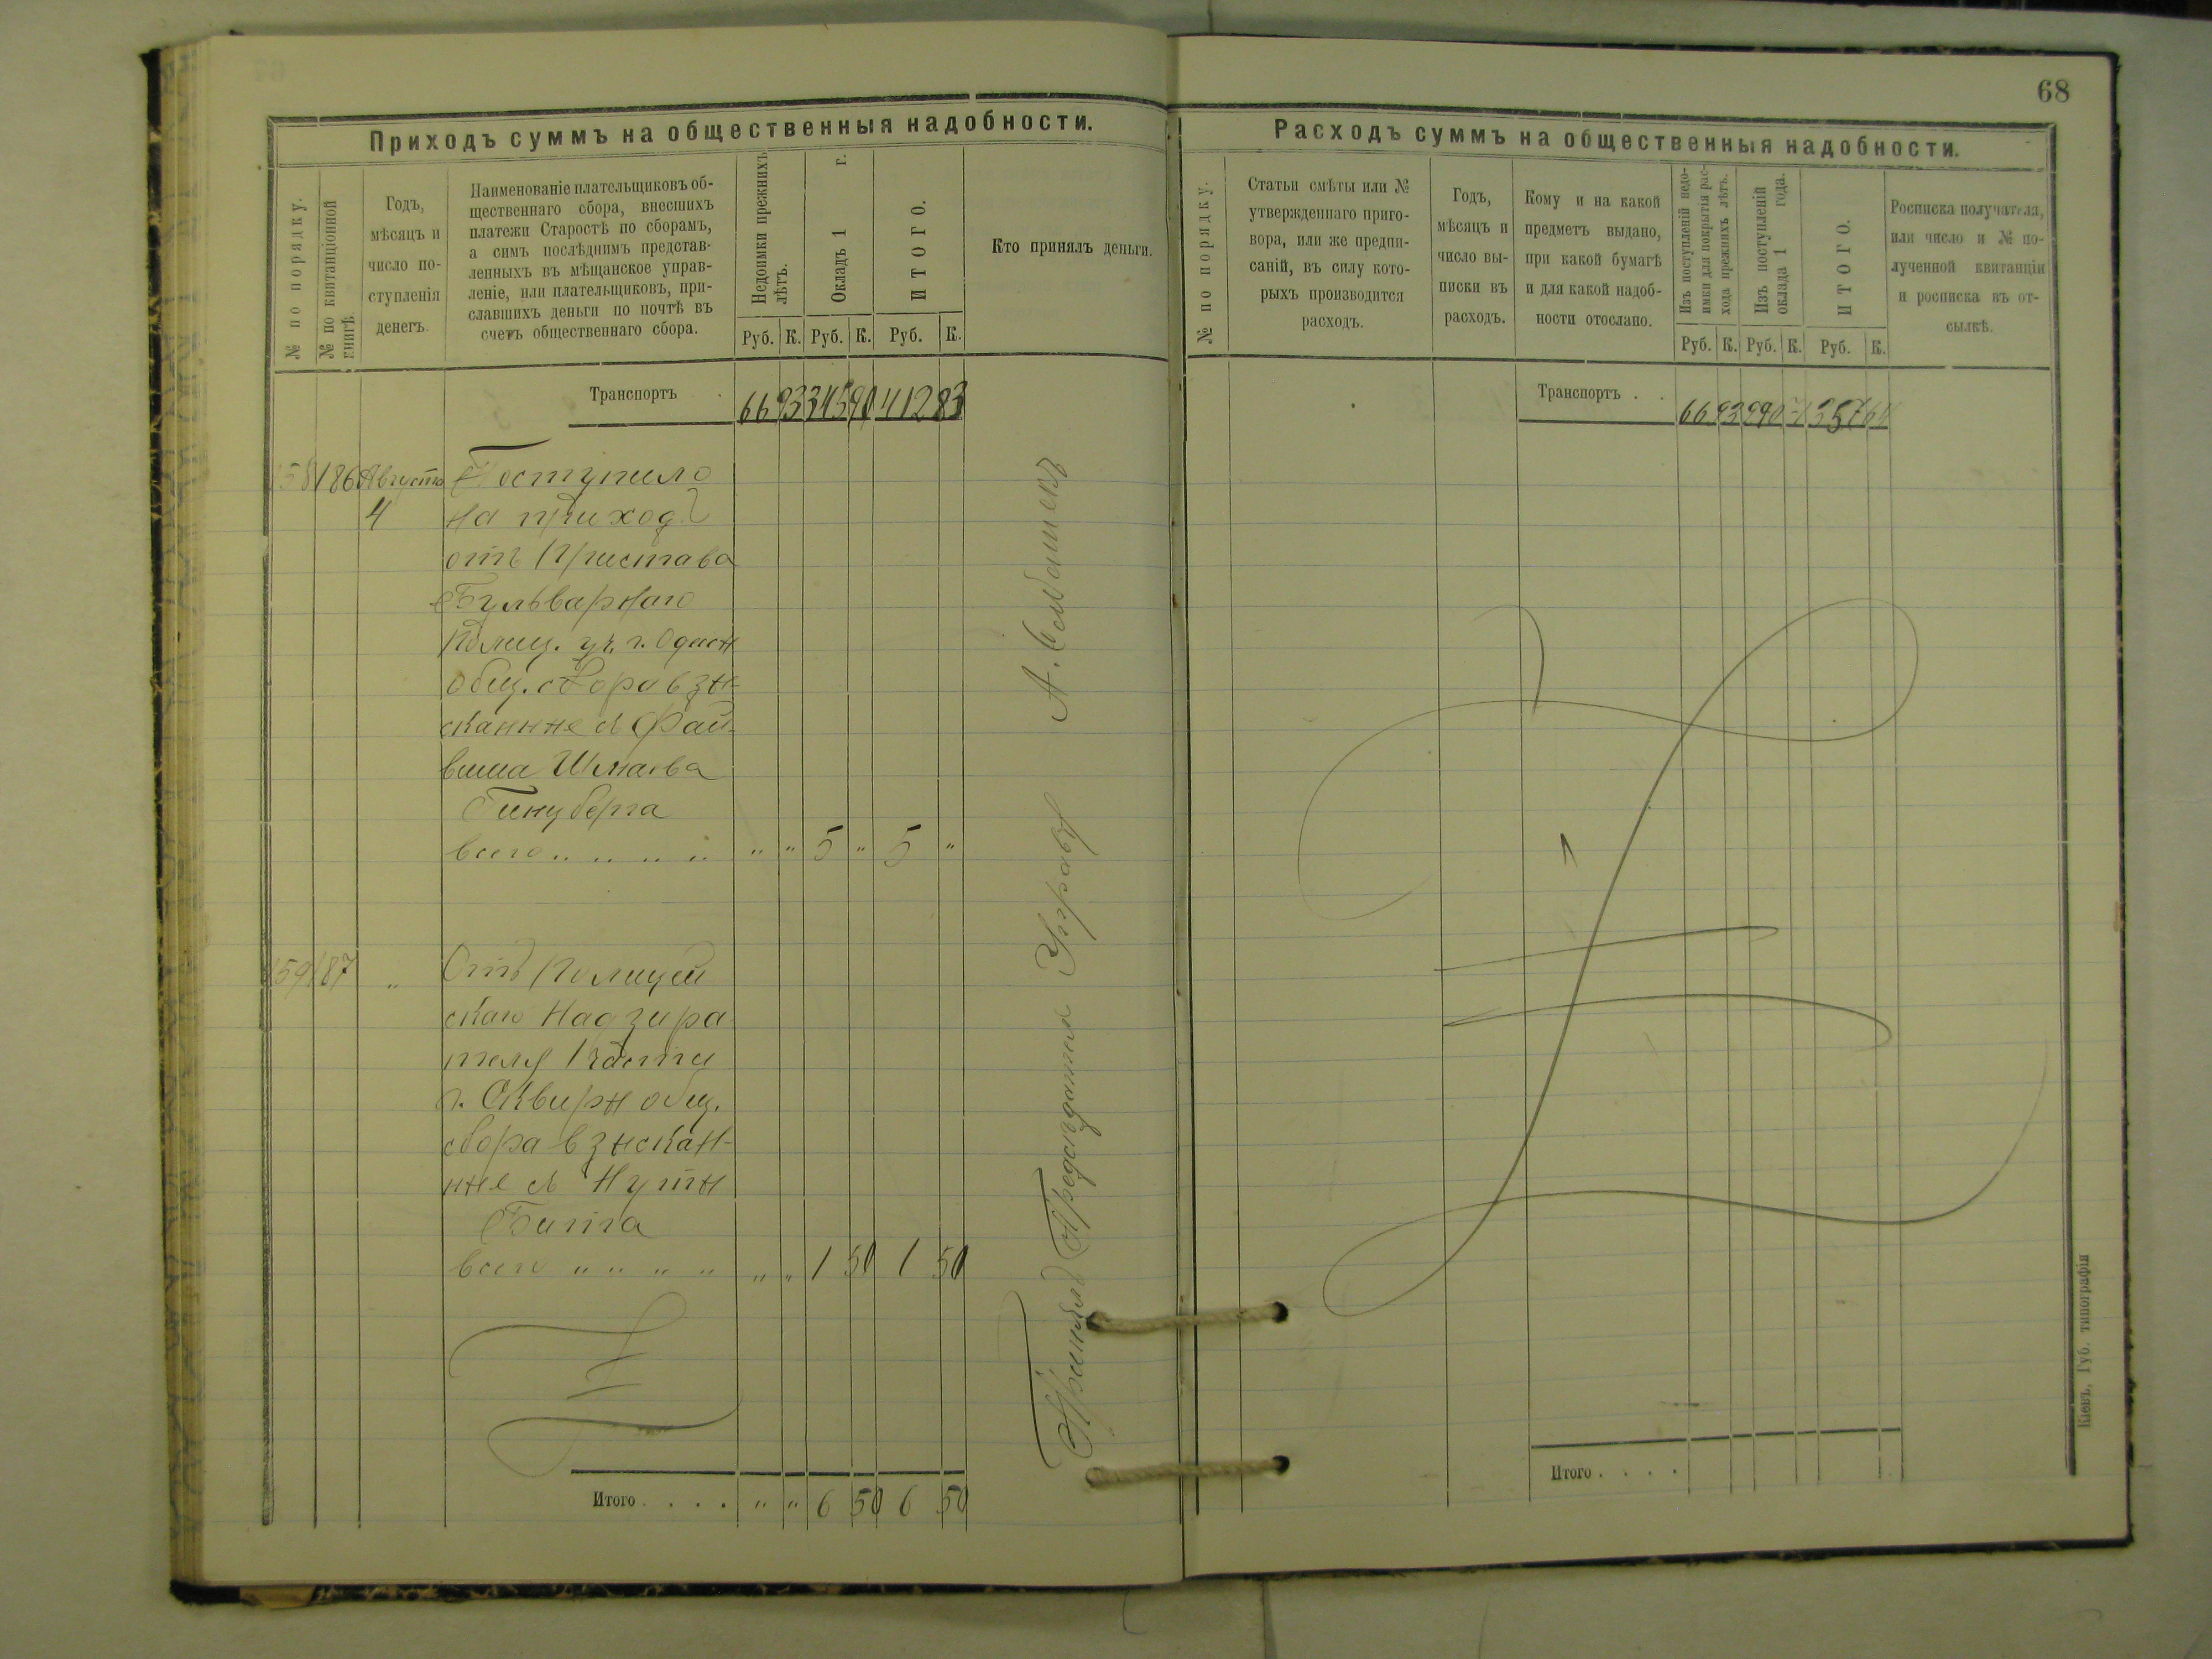 68
Приходъ суммъ на общественныя надобности.
№ по порядку.
№ по квитанціонной
книгѣ.
Годъ,
мѣсяцъ и
число по-
ступленія
денегъ.
Наименованіе плательщиковъ об-
щественнаго сбора, внесшихъ
платежи Старостѣ по сборамъ,
а симъ послѣднимъ представ-
ленныхъ въ мѣщанское управ-
леніе, или плательщиковъ, при-
славшихъ деньги по почтѣ въ
счетъ общественнаго сбора.
Недоимки прежнихъ
лѣтъ.
Окладъ 1 г.
ИТОГО.
Кто принялъ деньги.
Руб. К. Руб. К. Руб. К.
Транспортъ 66 93 345 90 412 83
158 186 Августа Поступило
4 на приход
отъ Пристава
Бульварнаго
Полиц. уч. г. Одессы
общ. сбора взы-
сканные съ Фай-
виша Шмаева
Гинцберга
всего „ „ „ „ „ „ 5 „ 5 „
159 187 „ Отъ Полицей
скаго Надзира
теля 1 части
г. Сквиры общ.
сбора взыскан-
ные съ Нуты
Бита
всего „ „ „ „ „ „ 1 50 1 50
Итого . . . . „ „ 6 50 6 50
Принялъ Предсѣдатель Управы А.
Расходъ суммъ на общественныя надобности.
№ по порядку.
Статьи смѣты или №
утвержденнаго приго-
вора, или же предпи-
саній, въ силу кото-
рыхъ производится
расходъ.
Годъ,
мѣсяцъ и
число вы-
писки въ
расходъ.
Кому и на какой
предметъ выдано,
при какой бумагѣ
и для какой надоб-
ности отослано.
Изъ поступленій недо-
имки для покрытія рас-
хода прежнихъ лѣтъ.
Изъ поступленій
оклада 1 года.
ИТОГО.
Росписка получателя,
или число и № по-
лученной квитанціи
и росписка въ от-
сылкѣ.
Руб. К. Руб. К. Руб. К.
Транспортъ . . 66 93 290 71 357 64
Итого . . . .
Кіевъ, Губ. типографія